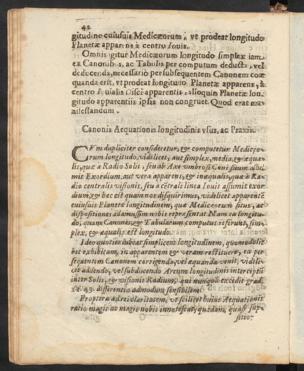 42
gitudine eiusuis Medicæorum, vt prodeat longitudo
Planetæ apparens à centro Iouis.
Omnis igitur Medicæorum longitudo simplex iam
ex Canonibus, ac Tabulis per computum deducta, vel
deducenda, necessario per subsequentem Canonem
quanda est, vt prodeat longitudo Planetæ apparens, à
centro Iouialis Disci apparentis, alioquin Planetæ lon-
gitudo apparentiis ipsis non congruet. Quod erat ma-
nifestandum.
Canonis Aequationis longitudinis vsus, ac Praxis.
CVm dupliciter consideretur, & computetur Medicæo-
rum longitudo, videlicet, aut simplex, media, & æqua-
lis, quæ à Radio Solis, seu ab Axe vmbroso
mit Exordium, aut vera apparens, & inæqualis, quæ à Ra-
dio centrali visionis, seu à centrali linea Iouis assumit exor-
dium, & hæc est quam nos disquirimus, videlicet apparens
cuiusuis Planetæ longitudinem, quæ Medicæorum situs, ac
dispositiones adamussim nobis repræsentat. Nam ea longitu-
do, quam Canones, & Tabularum computus referunt, sim-
plex, & æqualis est longitudo.
Ideo quoties habeat simplicem longitudinem, quomodolibet
exhibitam, in apparentem & veram restituere, ea per
sequentem Canonem corrigenda, vel æquanda venit, videli-
cet addendo, vel subducendo Arcum longitudinis intercepti
inter Solis, & visionis Radium, qui nunquam excedit grad.
differentia admodum sensibilem.
Propterea ad rei claritatem, vt scilicet huius Aequationis
ratio magis ac magis nobis innotescat, quædam, quasi sup-